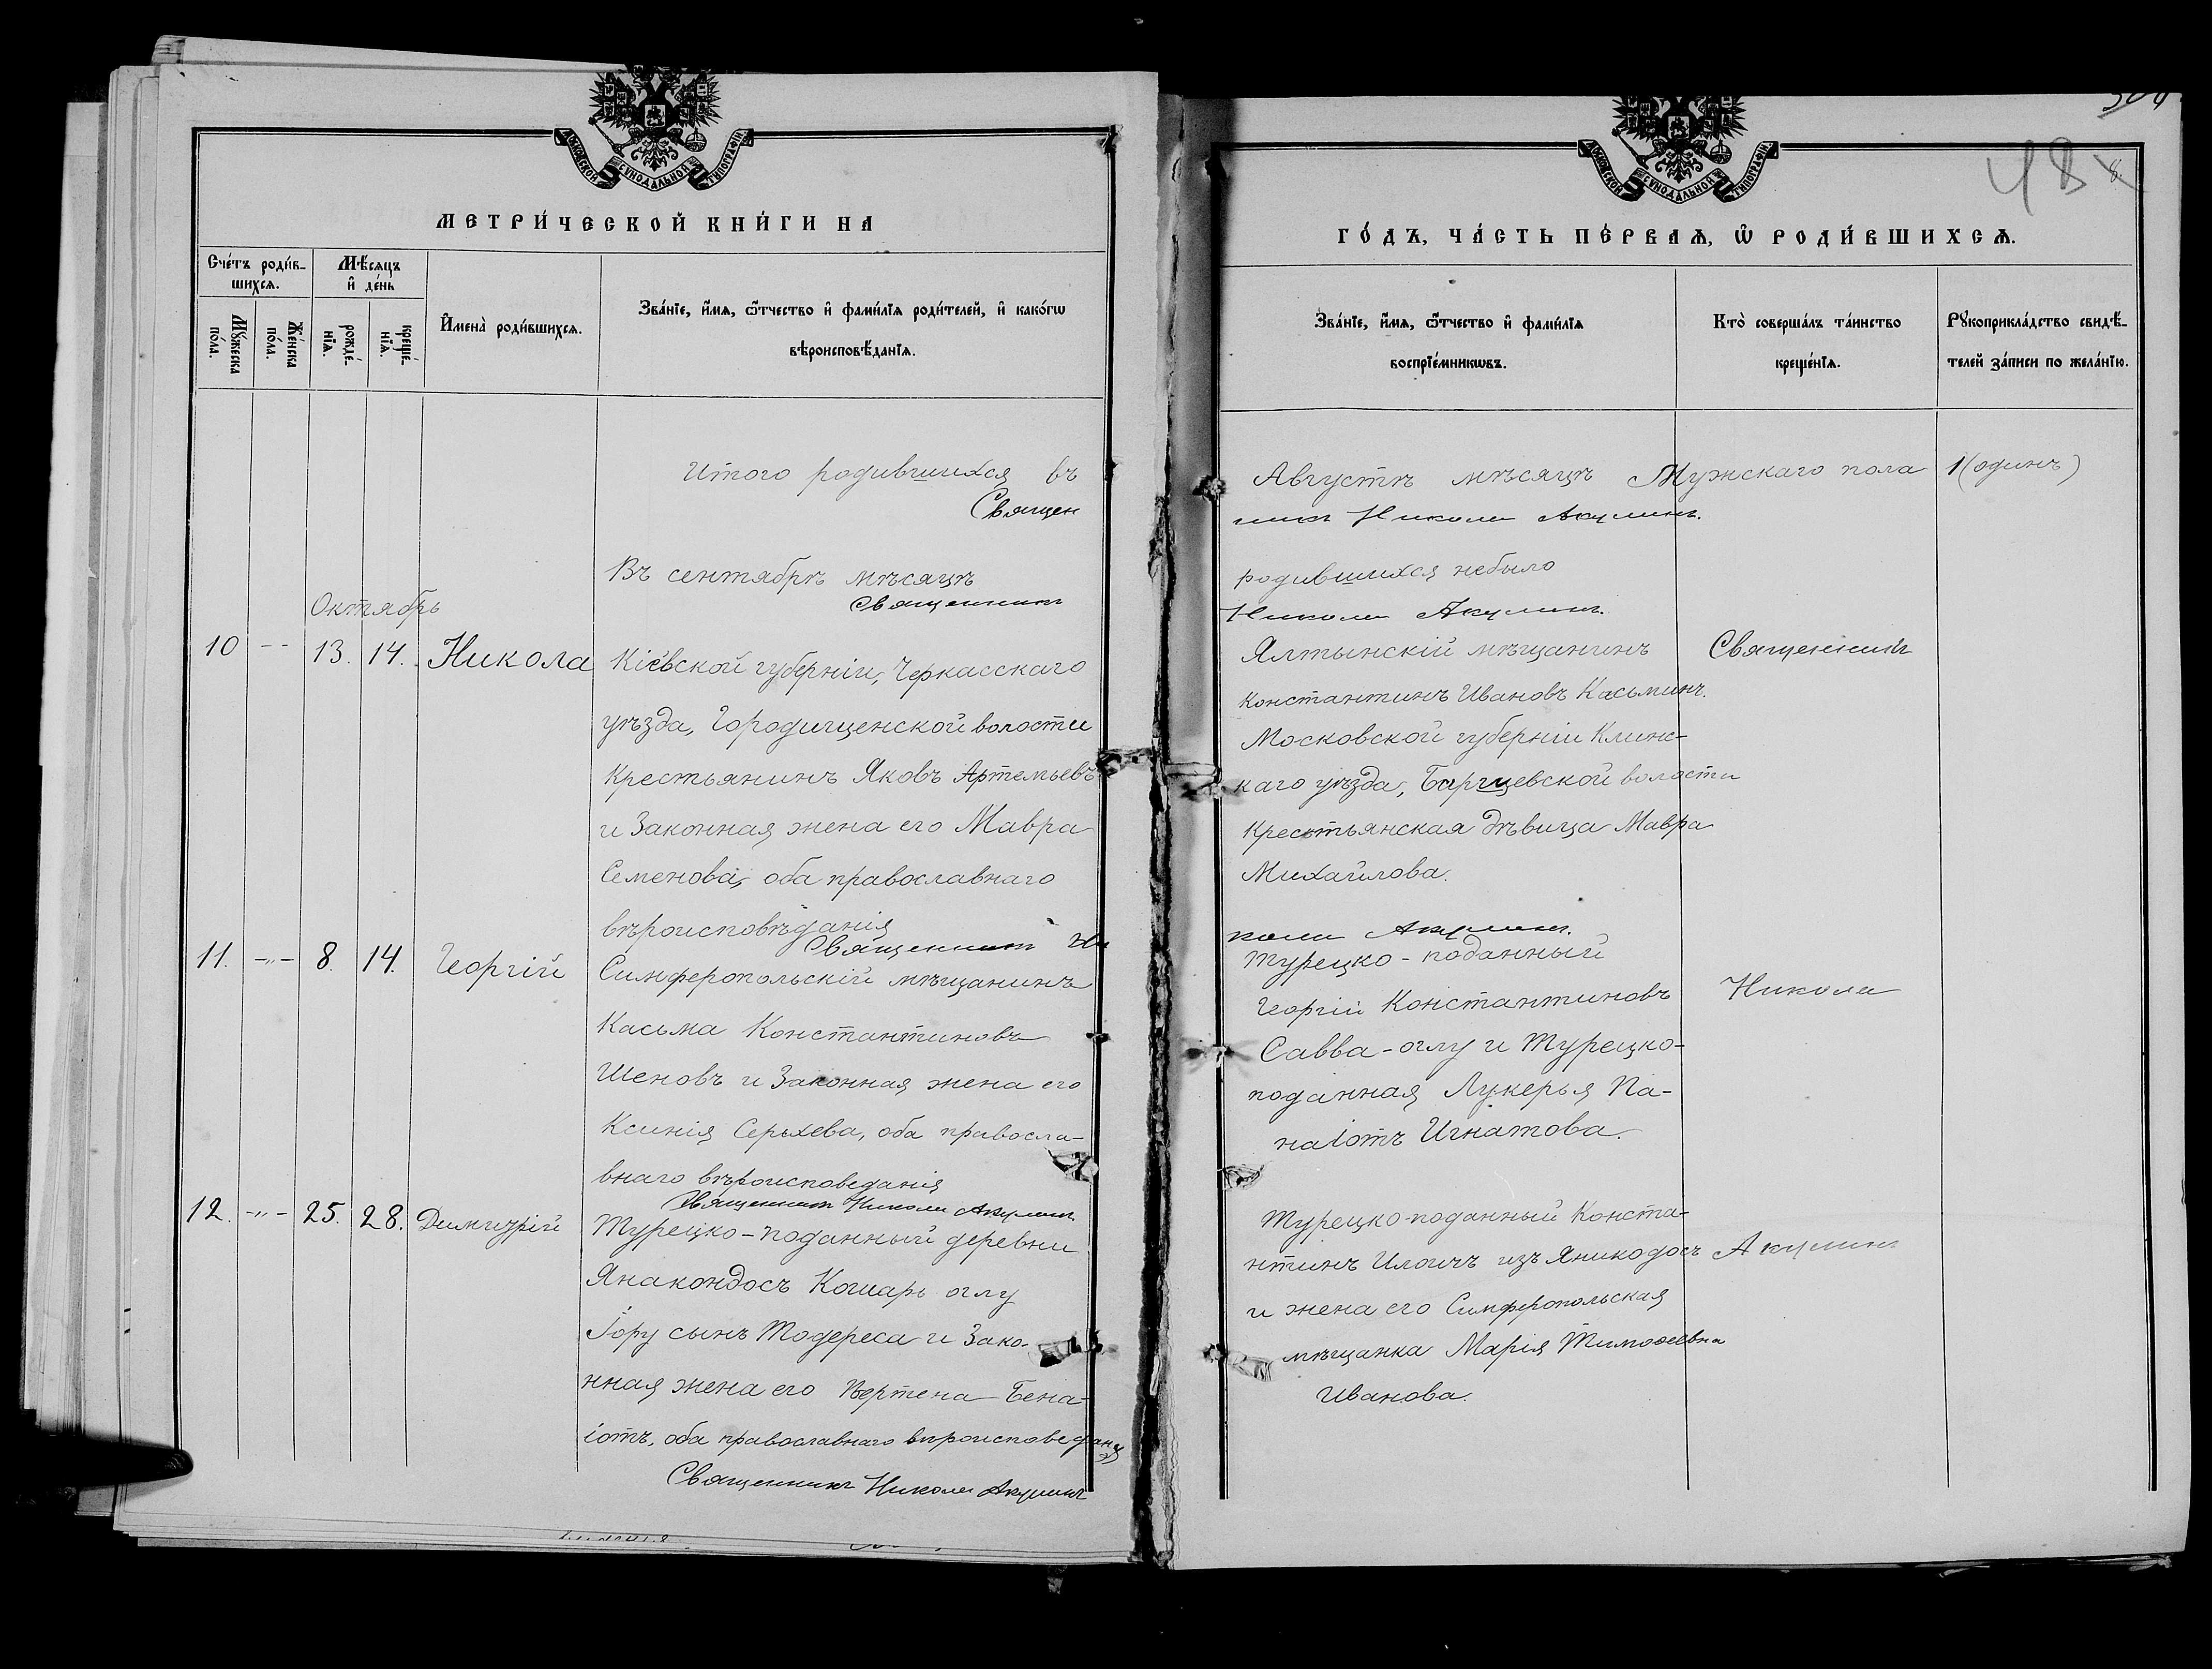 МОСКОВСКОЙ СѴНОДАЛЬНОЙ ТИПОГРАФІИ
МЕТРИ́ЧЕСКОЙ КНИ́ГИ НА
Сче́тъ роди́в-
шихсѧ.
Мѣ́сѧцъ
и҆ де́нь
Мꙋ́жеска
по́ла.
Же́нска
по́ла.
рожде́-
нїѧ.
креще́-
нїѧ.
И҆мена̀ роди́вшихсѧ.
Зва́нїе, и҆́мѧ, ѻ҆́тчество и҆ фами́лїѧ роди́телей, и҆ како́гѡ
вѣроисповѣ́данїѧ.
Итого родившихся въ
Священ
Въ сентябрѣ мѣсяцѣ
Священникъ
Октябрь
10 -- 13. 14. Никола
Кіевской губерніи, Черкасскаго
уѣзда, Городищенской волости
Крестьянинъ Яковъ Артемьевъ
и Законная жена его Мавра
Семенова, оба православнаго
вѣроисповѣданія
Священникъ Ни
11. -„- 8. 14. Георгій
Симферопольскій мѣщанинъ
Касьма Константиновъ
Шеновъ и Законная жена его
Ксинія Серьхева, оба правосла-
внаго вѣроисповеданія
Священникъ Николай Акулинъ
12. -„- 25. 28. Димитрій
Турецко-поданный деревни
Янакондосъ Кошарь оглу
Іору сынъ Тодереса и Зако-
нная жена его Вертена Бена-
іотъ, оба православнаго вѣроисповедан
Священникъ Николай Акулинъ
48
8.
МОСКОВСКОЙ СѴНОДАЛЬНОЙ ТИПОГРАФІИ
ГО́ДЪ, ЧА́СТЬ ПЕ́РВАѦ, Ѡ҆ РОДИ́ВШИХСѦ.
Зва́нїе, и҆́мѧ, ѻ҆́тчество и҆ фами́лїѧ
воспрїе́мникѡвъ.
Кто̀ соверша́лъ та́инство
креще́нїѧ.
Рꙋкоприкла́дство свидѣ́-
телей за́писи по жела́нїю.
Августѣ мѣсяцѣ Мужскаго пола 1 (одинъ)
никъ Николай Акулинъ.
родившихся небыло
Николай Акулинъ.
Ялтынскій мѣщанинъ
Константинъ Ивановъ Касьминъ.
Московской губерніи Клинс-
каго уѣзда, волости
Крестьянская дѣвица Мавра
Михайлова.
колай Акулинъ.
Турецко-поданный
Георгій Константиновъ
Савва-оглу и Турецко-
поданная Лукерья Па-
наіотъ Игнатова.
Турецко-поданный Конста-
нтинъ Иличъ изъ Яникодосъ
и жена его Симферопольская
мѣщанка Марія Тимоѳеевна
Иванова.
Священникъ
Николай
Акулинъ